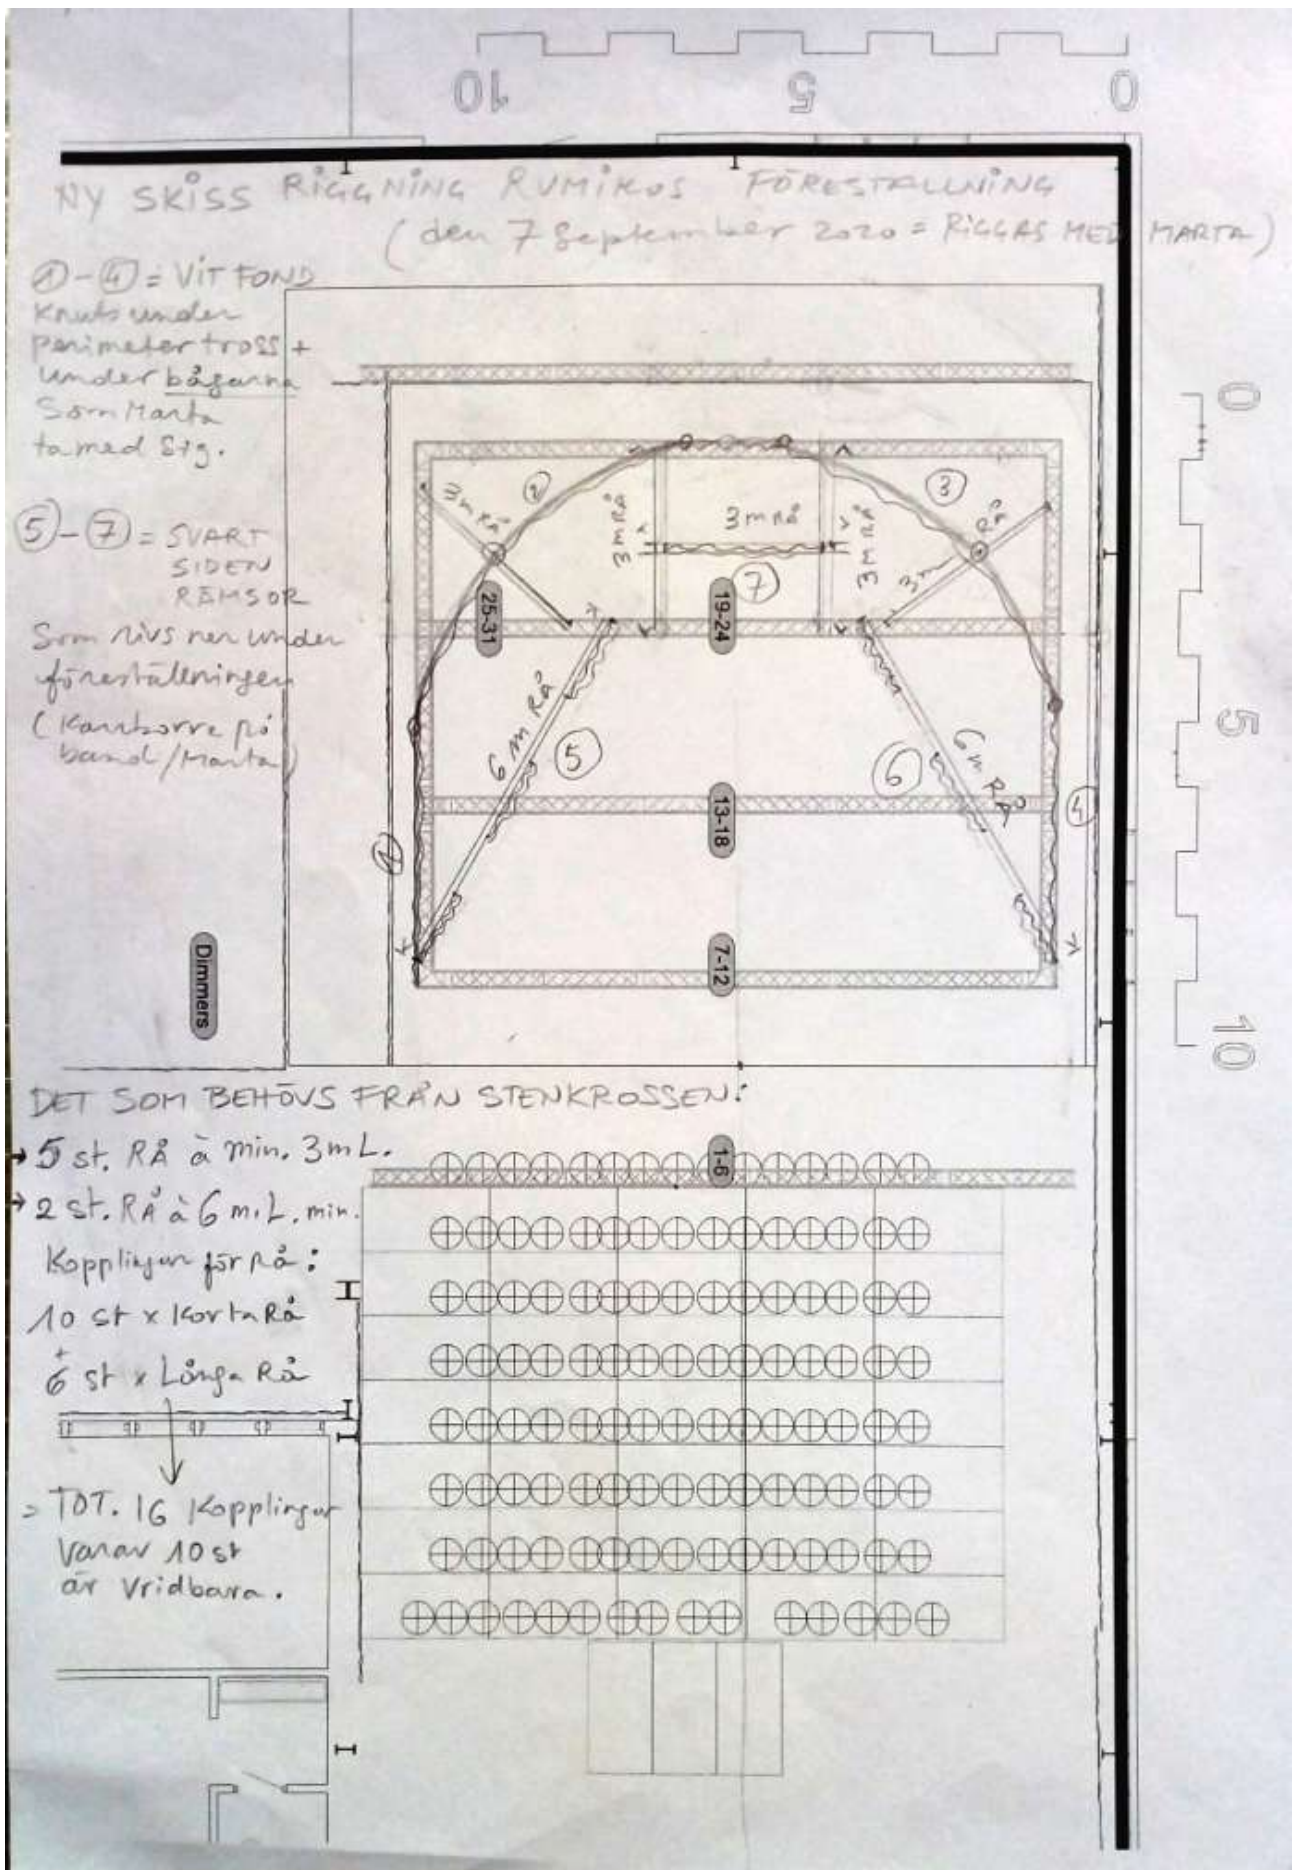 10 5 0
NY SKISS RIGGNING RUMIKOS FÖRESTÄLLNING
(den 7 September 2020 = RIGGAS MED MARTA)
①-④ = VIT FOND
Knuts under
perimeter tross +
under bågarna
Som Marta
ta med sig.
⑤-⑦ = SVART
SIDEN
REMSOR
Som rivs ner under
föreställningen
(Kardborre på
band/Marta)
0
5
10
②
③
3m RÅ
3m RÅ
3m RÅ
3m RÅ
3m RÅ
⑦
25-31
19-24
6 m RÅ
⑤
⑥
6m RÅ
①
13-18
④
7-12
Dimmers
DET SOM BEHÖVS FRÅN STENKROSSEN:
→ 5 st. RÅ à min. 3m L.
1-6
→ 2 st. RÅ à 6 m. L. min.
Kopplingar för rå:
10 st x Korta Rå
+
6 st x Långa Rå
= TOT. 16 Kopplingar
Varav 10 st
är Vridbara.